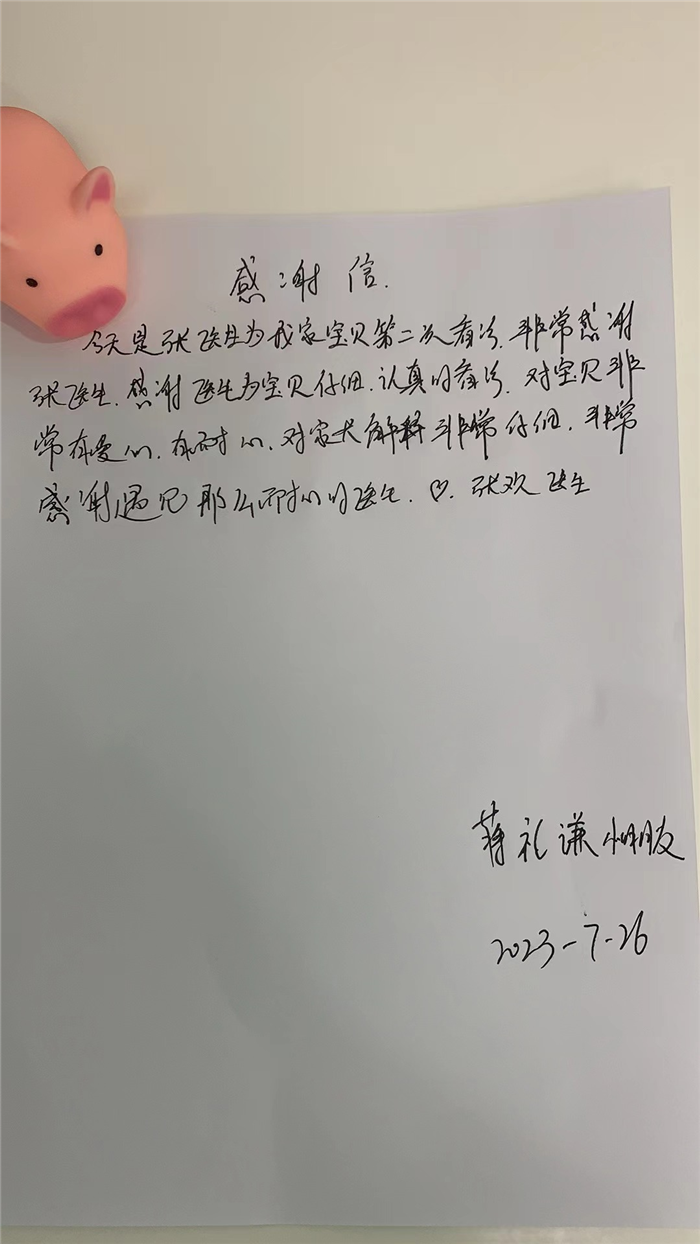 感谢信.
今天是张医生为我家宝贝第二次看诊.非常感谢
张医生.感谢医生为宝贝仔细.认真的看诊.对宝贝非
常有爱心.有耐心.对家长解释非常仔细.非常
感谢遇见那么耐心的医生.♡.张欢医生
蒋礼谦小朋友
2023-7-26